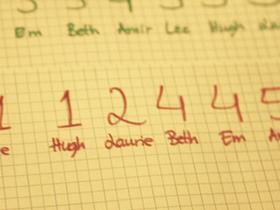 Em Beth Amir Lee Hugh
1 1 2 4 4 5
e Hugh Laurie Beth Em A